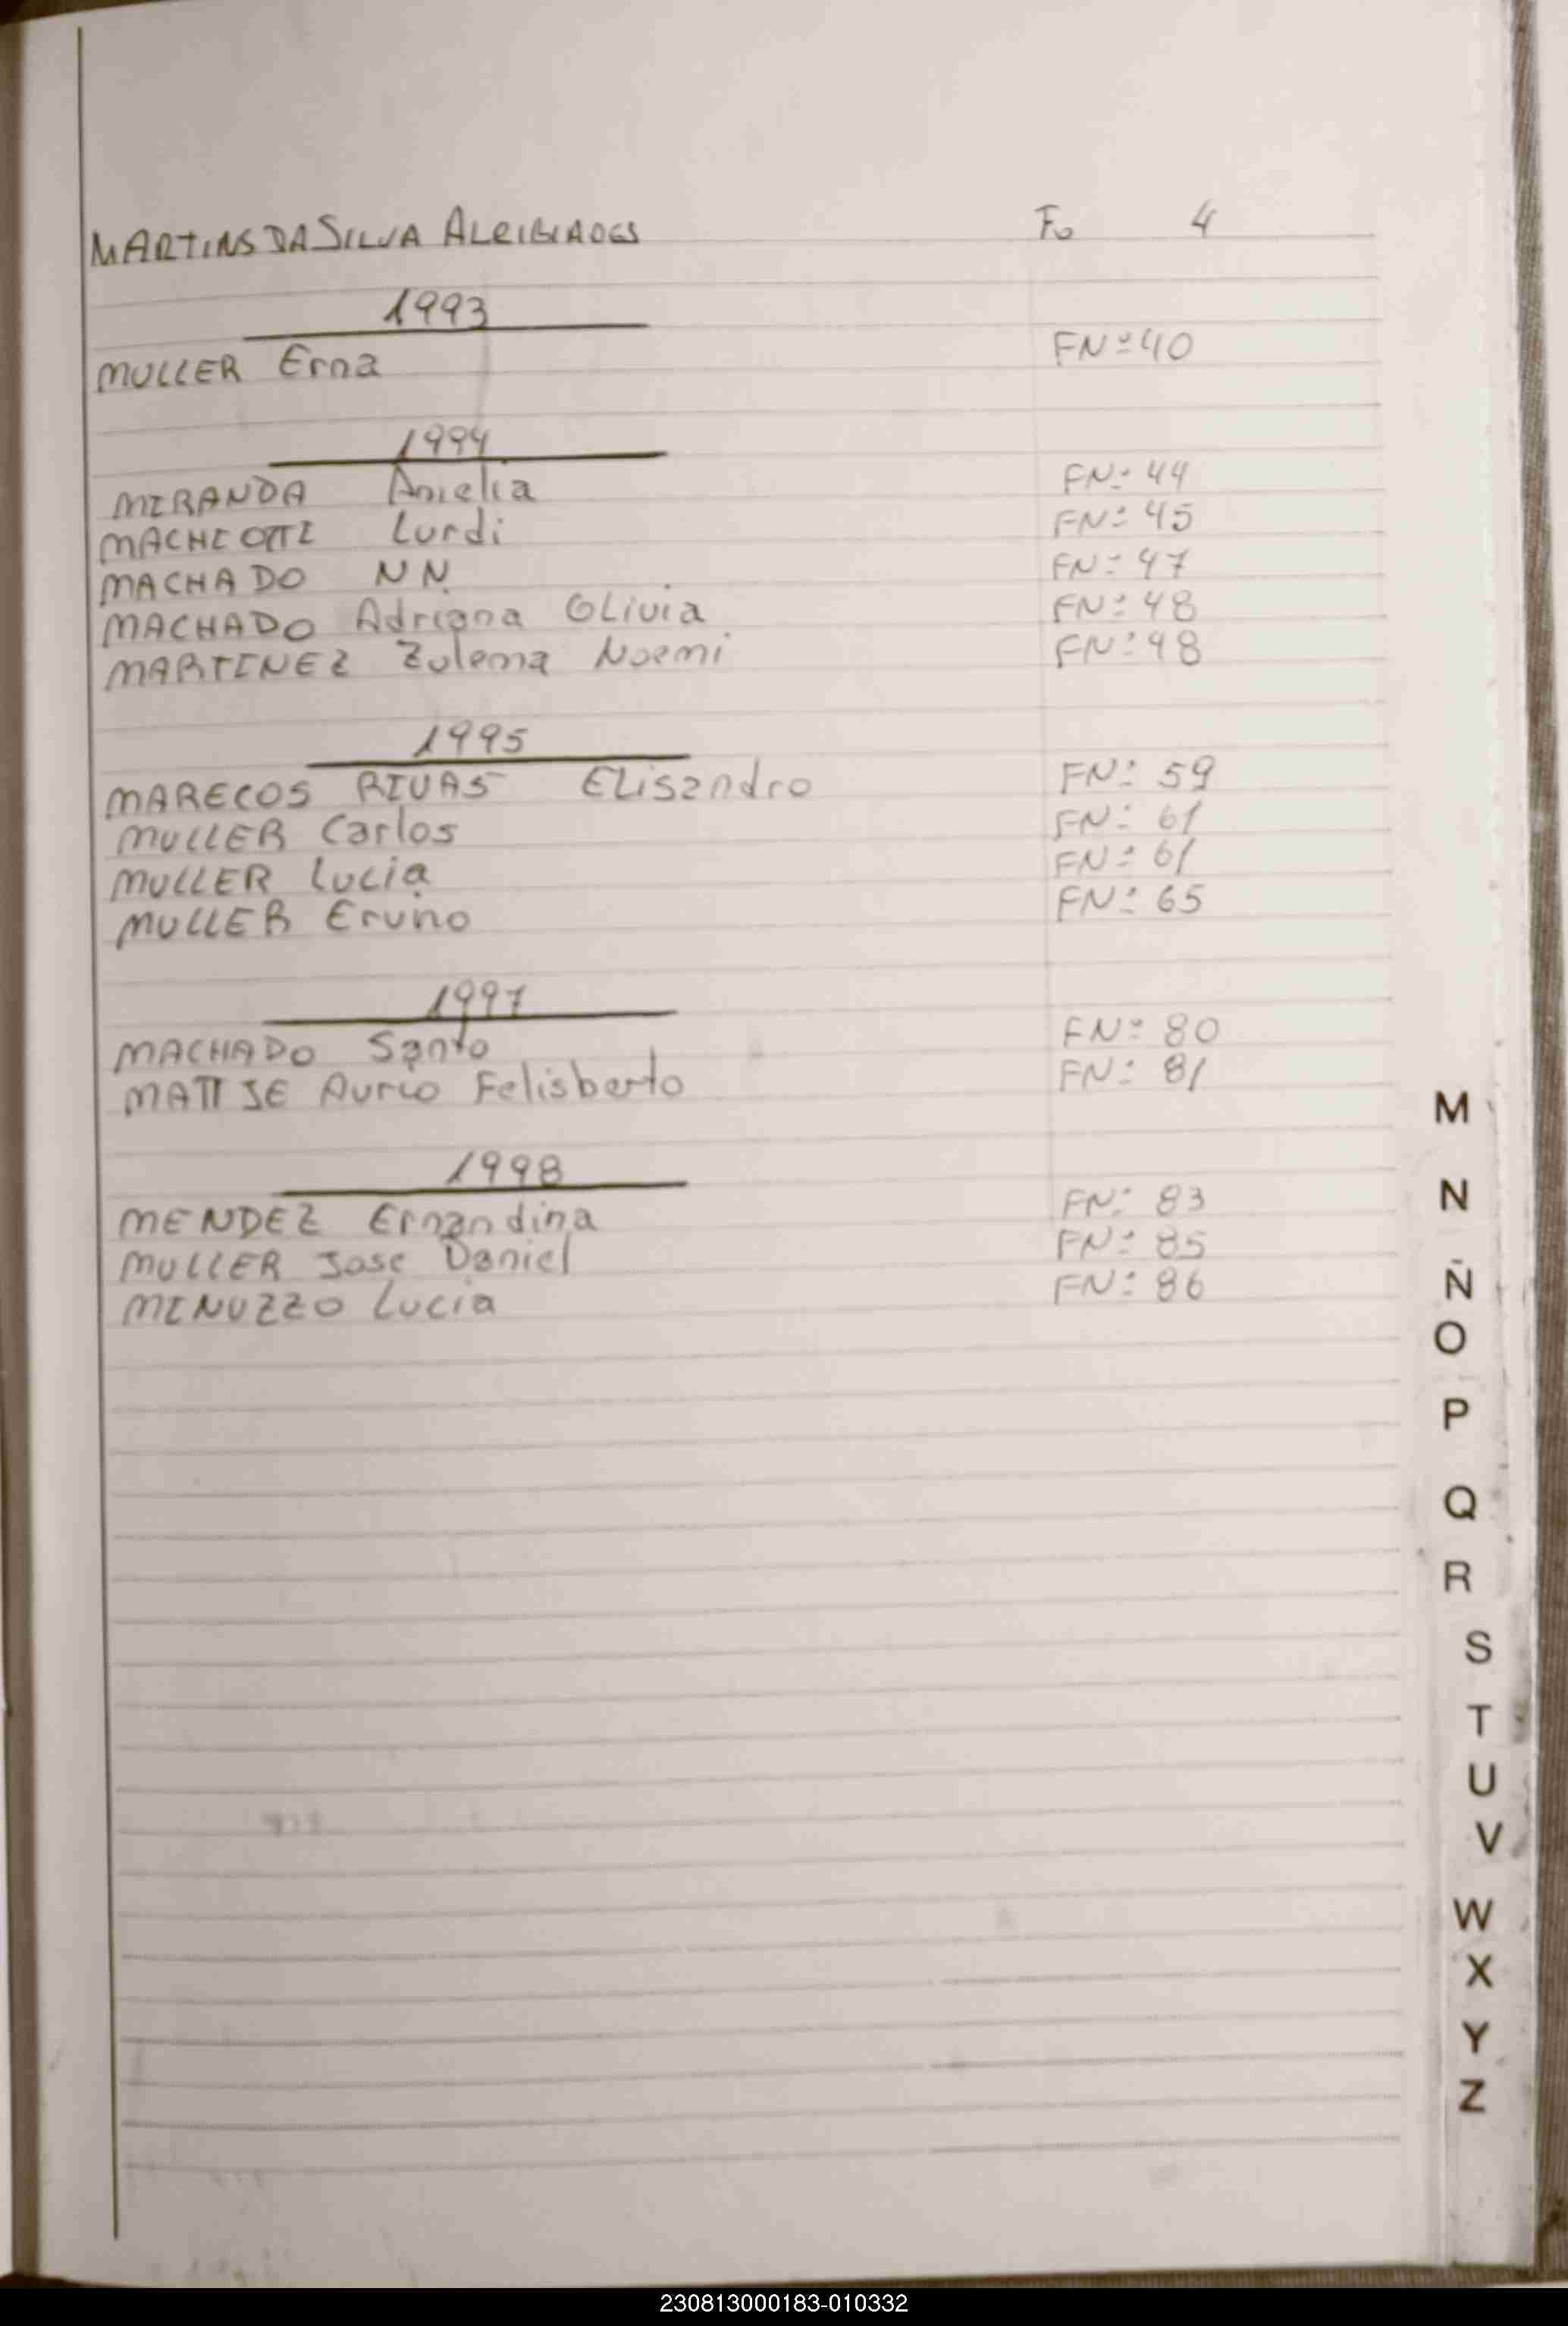 MARTINS DA SILVA ALCIBIADES Fo 4
1993
MULLER Erna FNº 40
1994
MIRANDA Amelia FNº 44
MACHEOTTI Lurdi FNº 45
MACHADO NN FNº 47
MACHADO Adriana OLivia FNº 48
MARTINEZ Zulema Noemi FNº 48
1995
MARECOS RIVAS ELisandro FNº 59
MULLER Carlos FNº 61
MULLER Lucia FNº 61
MULLER Eruno FNº 65
1997
MACHADO Santo FNº 80
MATTJE Aurio Felisberto FNº 81
1998
MENDEZ Ernandina FNº 83
MULLER Jose Daniel FNº 85
MINUZZO Lucia FNº 86
M
N
Ñ
O
P
Q
R
S
T
U
V
W
X
Y
Z
230813000183-010332